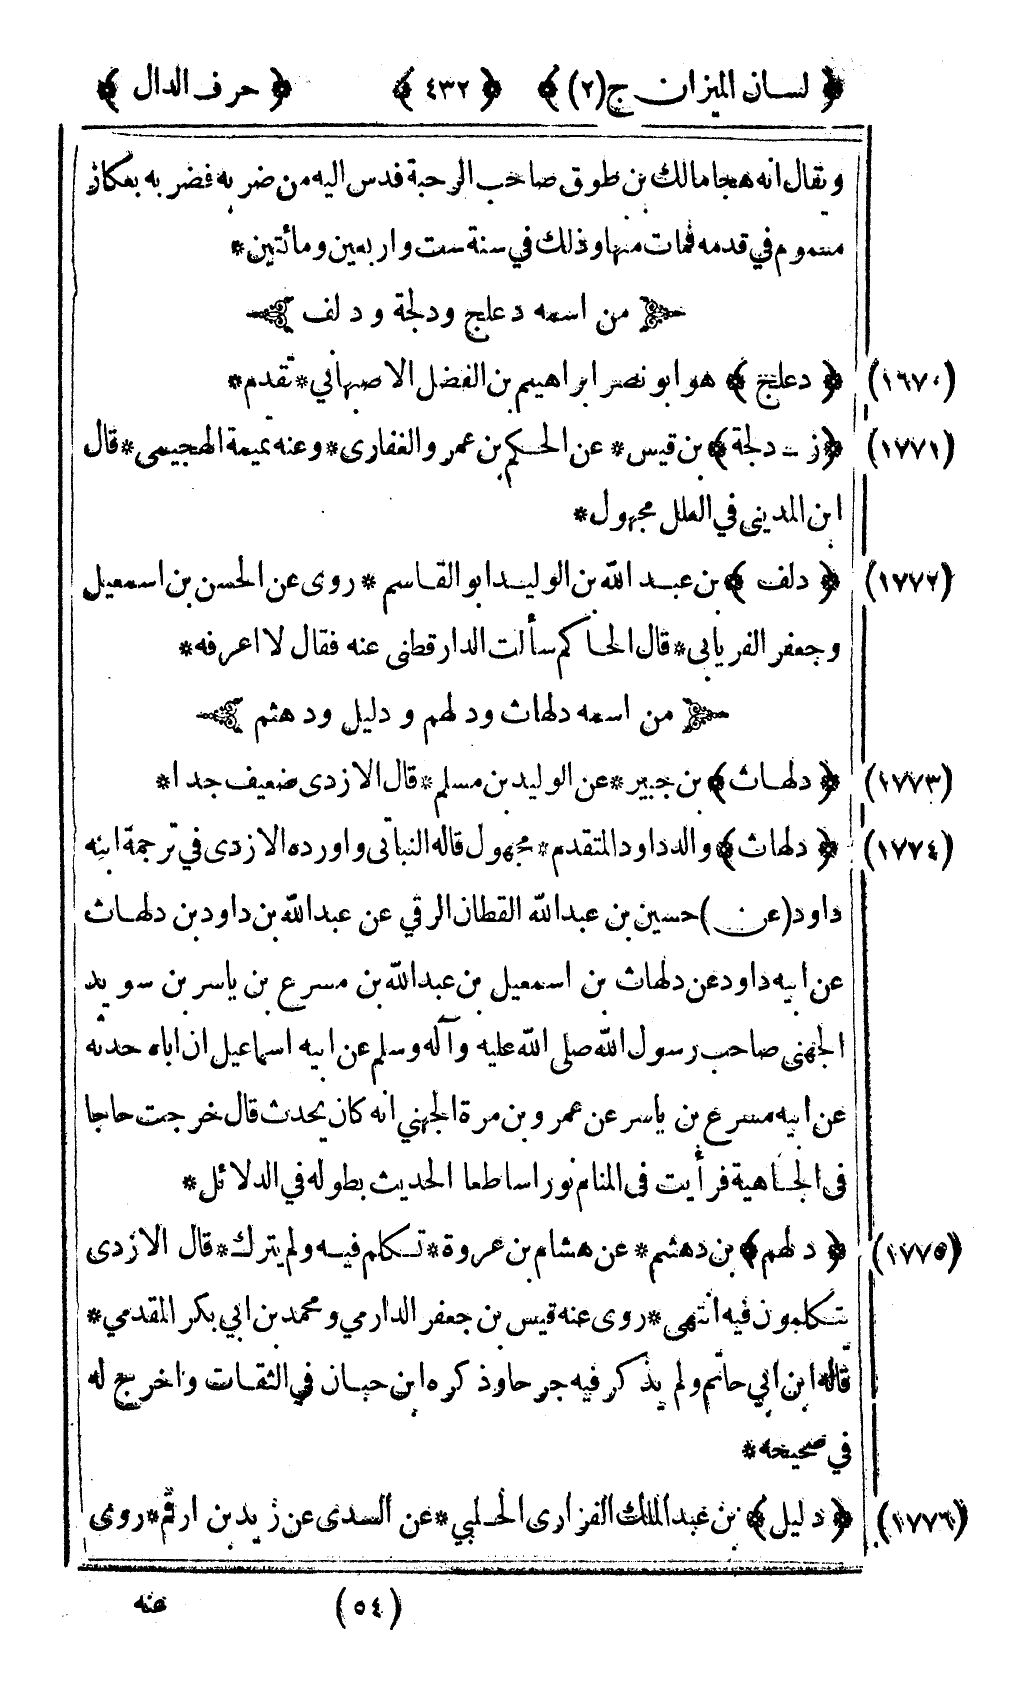 ﴿ لسان الميزان ج(٢) ﴾ ﴿ ٤٣٢ ﴾ ﴿ حرف الدال ﴾
ويقال انه هجا مالك بن طوق صاحب الرحبة فدس اليه من ضربه فضربه بعكاز
مسموم في قدمه فمات منها وذلك في سنة ست واربعين ومائتين *
من اسمه دعلج ودلجة و دلف
(١٦٧٠) ﴿ دعلج ﴾ هو ابو نصر ابراهيم بن الفضل الاصبهاني * تقدم *
(١٧٧١) ﴿ ز - دلجة ﴾ بن قيس * عن الحكم بن عمرو الغفارى * وعنه تميمة الهجيمى * قال
ابن المدينى في العلل مجهول *
(١٧٧٢) ﴿ دلف ﴾ بن عبد الله بن الوليد ابو القاسم * روى عن الحسن بن اسمعيل
وجعفر الفريابى * قال الحاكم سألت الدارقطنى عنه فقال لا اعرفه *
من اسمه دلهاث ودلهم و دليل ودهثم
(١٧٧٣) ﴿ دلهاث ﴾ بن جبير * عن الوليد بن مسلم * قال الازدى ضعيف جدا *
(١٧٧٤) ﴿ دلهاث ﴾ والد داود المتقدم * مجهول قاله النباتى واورده الازدى في ترجمة ابنه
داود (عن) حسين بن عبدالله القطان الرقي عن عبدالله بن داود بن دلهاث
عن ابيه داود عن دلهاث بن اسمعيل بن عبدالله بن مسرع بن ياسر بن سويد
الجهنى صاحب رسول الله صلى الله عليه وآله وسلم عن ابيه اسماعيل ان اباه حدثه
عن ابيه مسرع بن ياسر عن عمرو بن مرة الجهني انه كان يحدث قال خرجت حاجا
فى الجاهية فرأيت فى المنام نورا ساطعا الحديث بطوله في الدلائل *
(١٧٧٥) ﴿ دلهم ﴾ بن دهثم * عن هشام بن عروة * تكلم فيه ولم يترك * قال الازدى
يتكلمون فيه انتهى * روى عنه قيس بن جعفر الدارمي ومحمد بن ابي بكر المقدمي *
قاله ابن ابي حاتم ولم يذكر فيه جرحا وذكره ابن حبان في الثقات واخرج له
في صحيحه *
(١٧٧٦) ﴿ دليل ﴾ بن عبد الملك الفزارى الحلبي * عن السدى عن زيد بن ارقم * روى
(٥٤) عنه